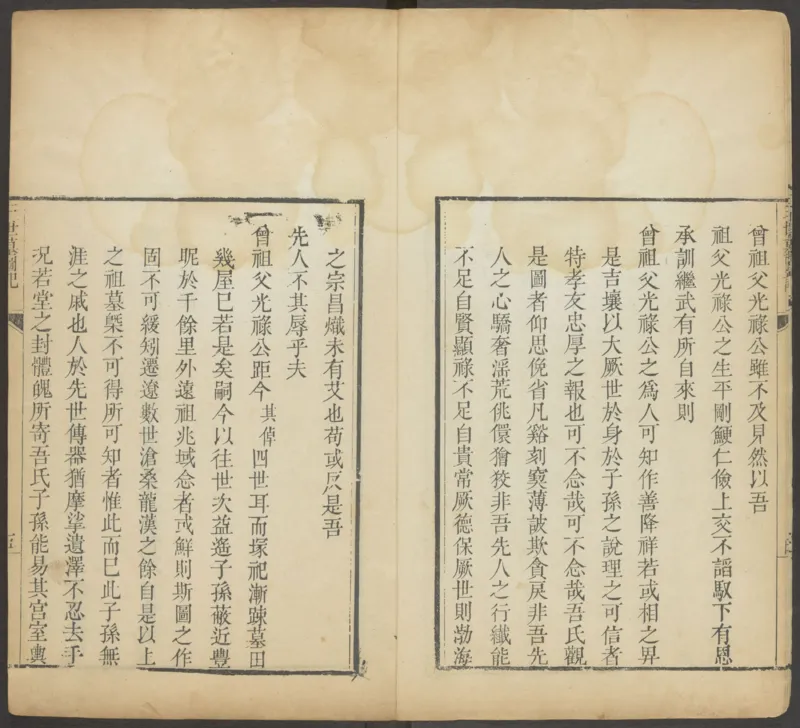 曾祖父光祿公雖不及見然以吾
祖父光祿公之生平剛鯁仁儉上交不謟馭下有恩
承訓繼武有所自來則
曾祖父光祿公之爲人可知作善降祥若或相之畀
是吉壤以大厥世於身於子孫之說理之可信者
特孝友忠厚之報也可不念哉可不念哉吾氏觀
是圖者仰思俛省凡谿刻䆮薄詖欺貪戾非吾先
人之心驕奢滛荒佻儇獪狡非吾先人之行纖能
不足自賢顯祿不足自貴常厥德保厥世則渤海
之宗昌熾未有艾也苟或反是吾
先人不其辱乎夫
曾祖父光祿公距今其倬四世耳而塚祀漸踈墓田
幾屋已若是矣嗣今以往世次益遙子孫蔽近豐
昵於千餘里外遠祖兆域念者或鮮則斯圖之作
固不可緩矧遷遼數世滄桑龍漢之餘自是以上
之祖墓槩不可得所可知者惟此而已此子孫無
涯之戚也人於先世傳器猶摩挲遺澤不忍去手
況若堂之封體魄所寄吾氏子孫能易其宮室輿